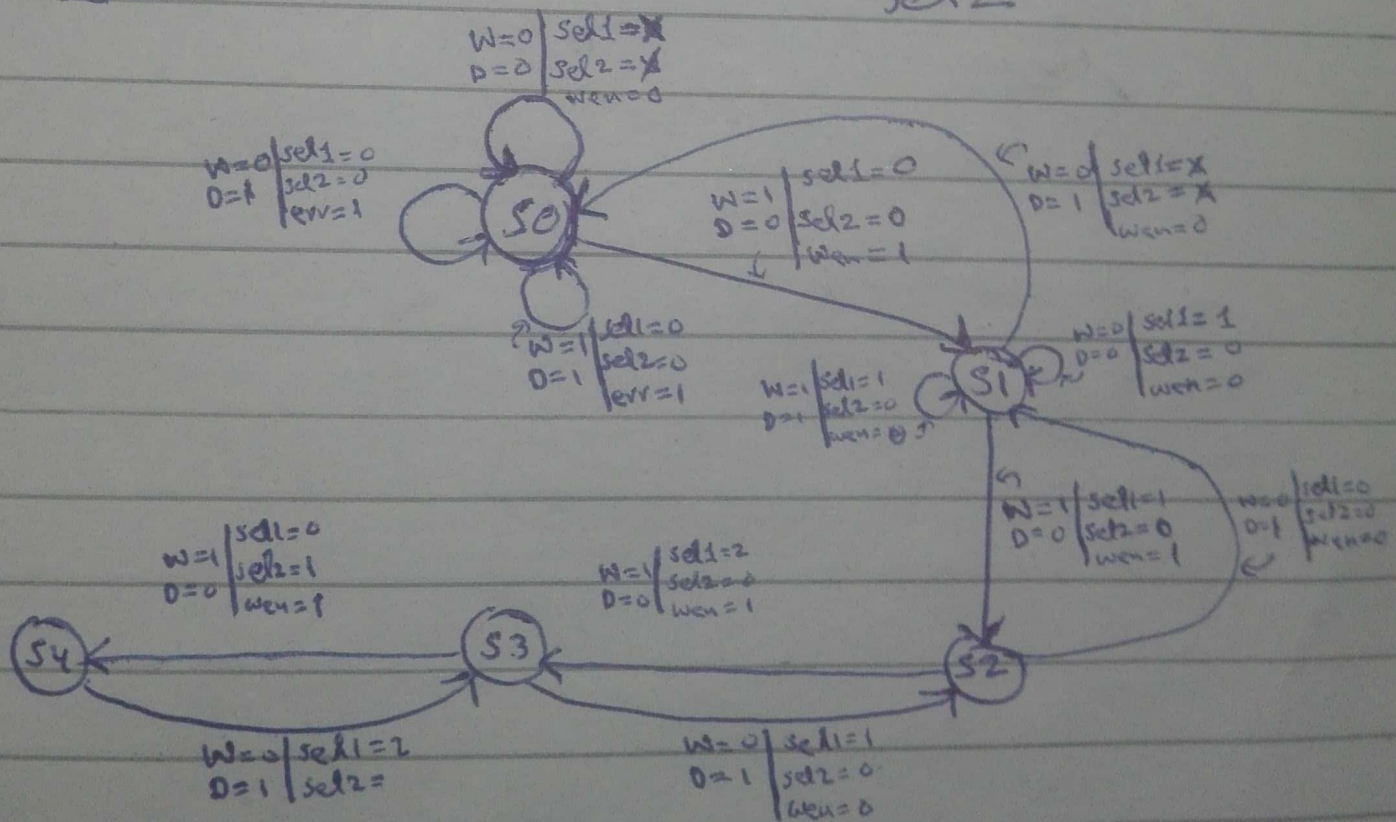 sel2
W=0 | sel1=X
D=0 | sel2=X
wen=0
W=0 | sel1=0
D=1 | sel2=0
err=1
S0
W=1 | sel1=0
D=0 | sel2=0
wen=1
W=0 | sel1=X
D=1 | sel2=X
wen=0
W=1 | sel1=0
D=1 | sel2=0
err=1
W=1 | sel1=1
D=1 | sel2=0
wen=0
S1
W=0 | sel1=1
D=0 | sel2=0
wen=0
W=1 | sel1=1
D=0 | sel2=0
wen=1
W=0 | sel1=0
D=1 | sel2=0
wen=0
W=1 | sel1=0
D=0 | sel2=1
wen=1
W=1 | sel1=2
D=0 | sel2=0
wen=1
S4
S3
S2
W=0 | sel1=2
D=1 | sel2=
W=0 | sel1=1
D=1 | sel2=0
wen=0